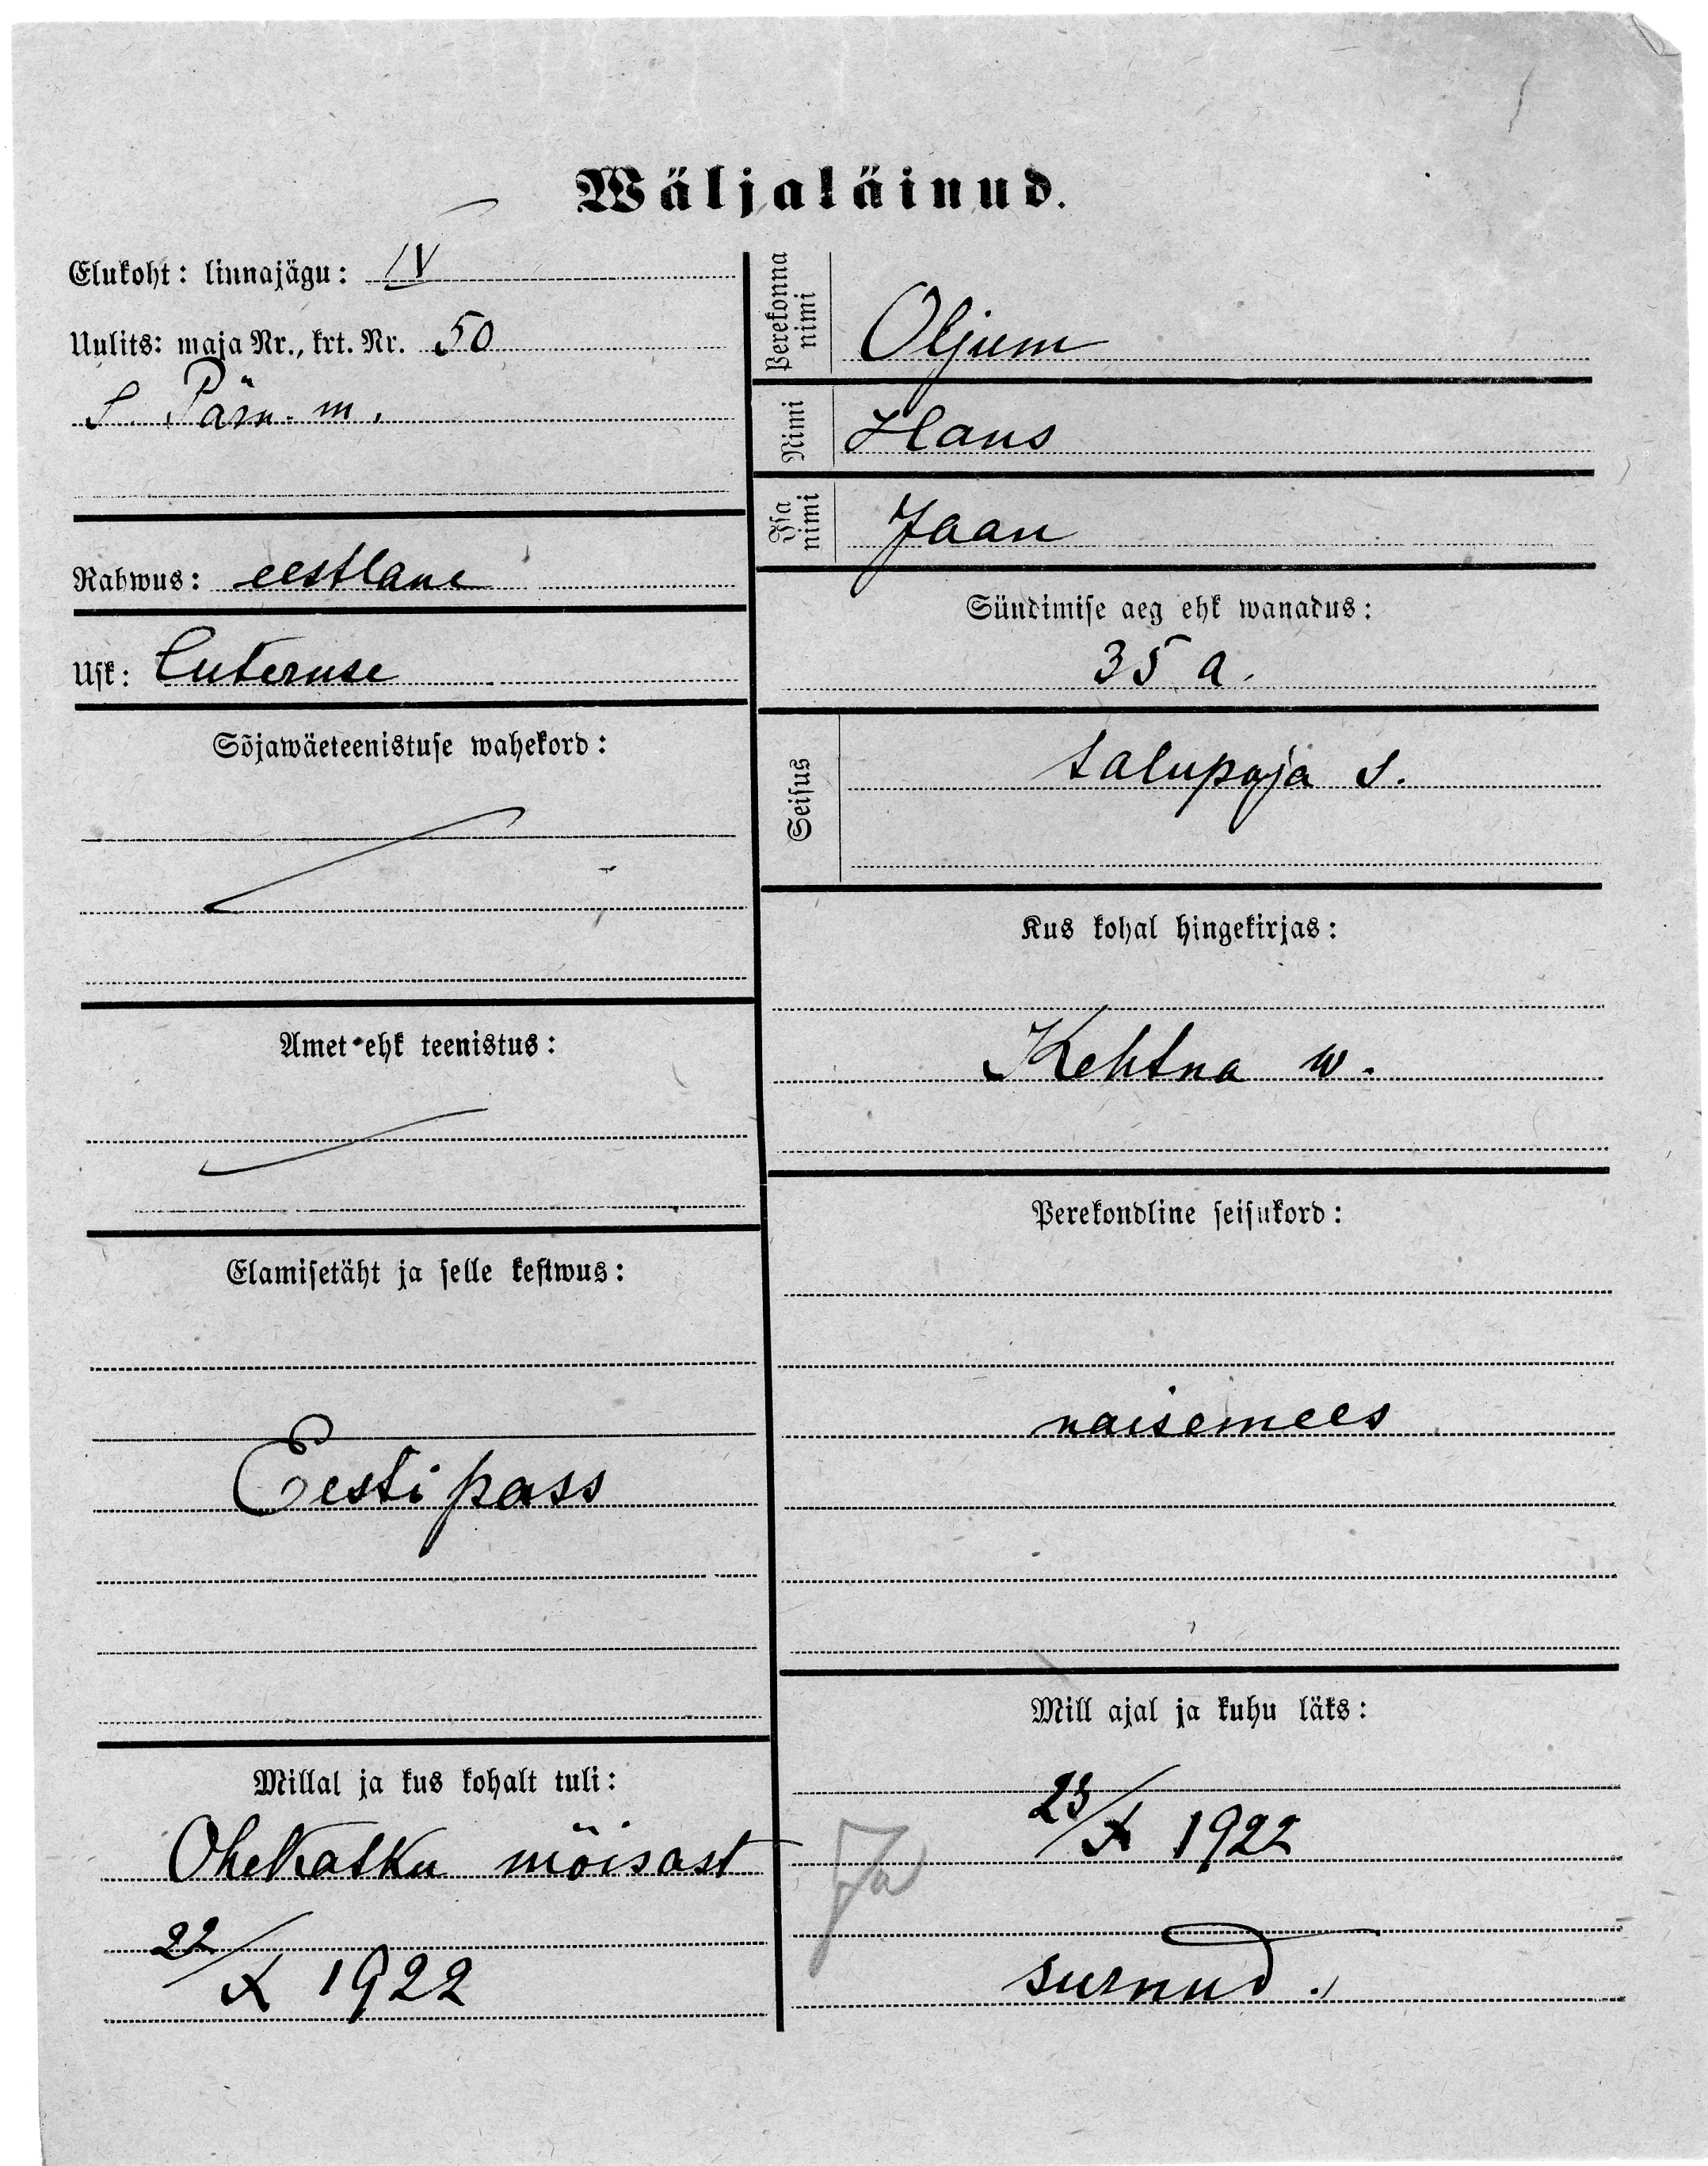 Wäljaläinud.
Elukoht: linnajägu: IV
Uulits: maja Nr., krt. Nr. 50
S. Pärn. m.
Rahwus: eestlane
Usk: luteruse
Sõjawäeteenistuse wahekord:
Amet ehk teenistus:
Elamisetäht ja selle kestwus:
Eesti pass
Millal ja kus kohalt tuli:
Ohekatku mõisast
22/X 1922
Perekonna nimi Oljum
Nimi Hans
Isa nimi Jaan
Sündimise aeg ehk wanadus:
35 a.
Seisus talupoja s.
Kus kohal hingekirjas:
Kehtna w.
Perekondline seisukord:
naisemees
Mill ajal ja kuhu läks:
23/X 1922
surnud.